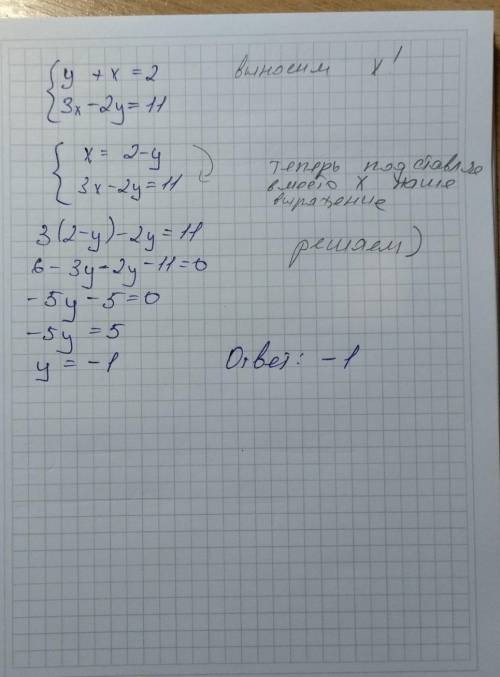 y + x = 2
3x-2y=11
выносим x
x = 2-y
3x-2y=11
теперь подставляе
вместо x наше
выражение
3(2-y)-2y=11
6-3y-2y-11=0
решаем)
-5y-5=0
-5y=5
y=-1
Ответ: -1